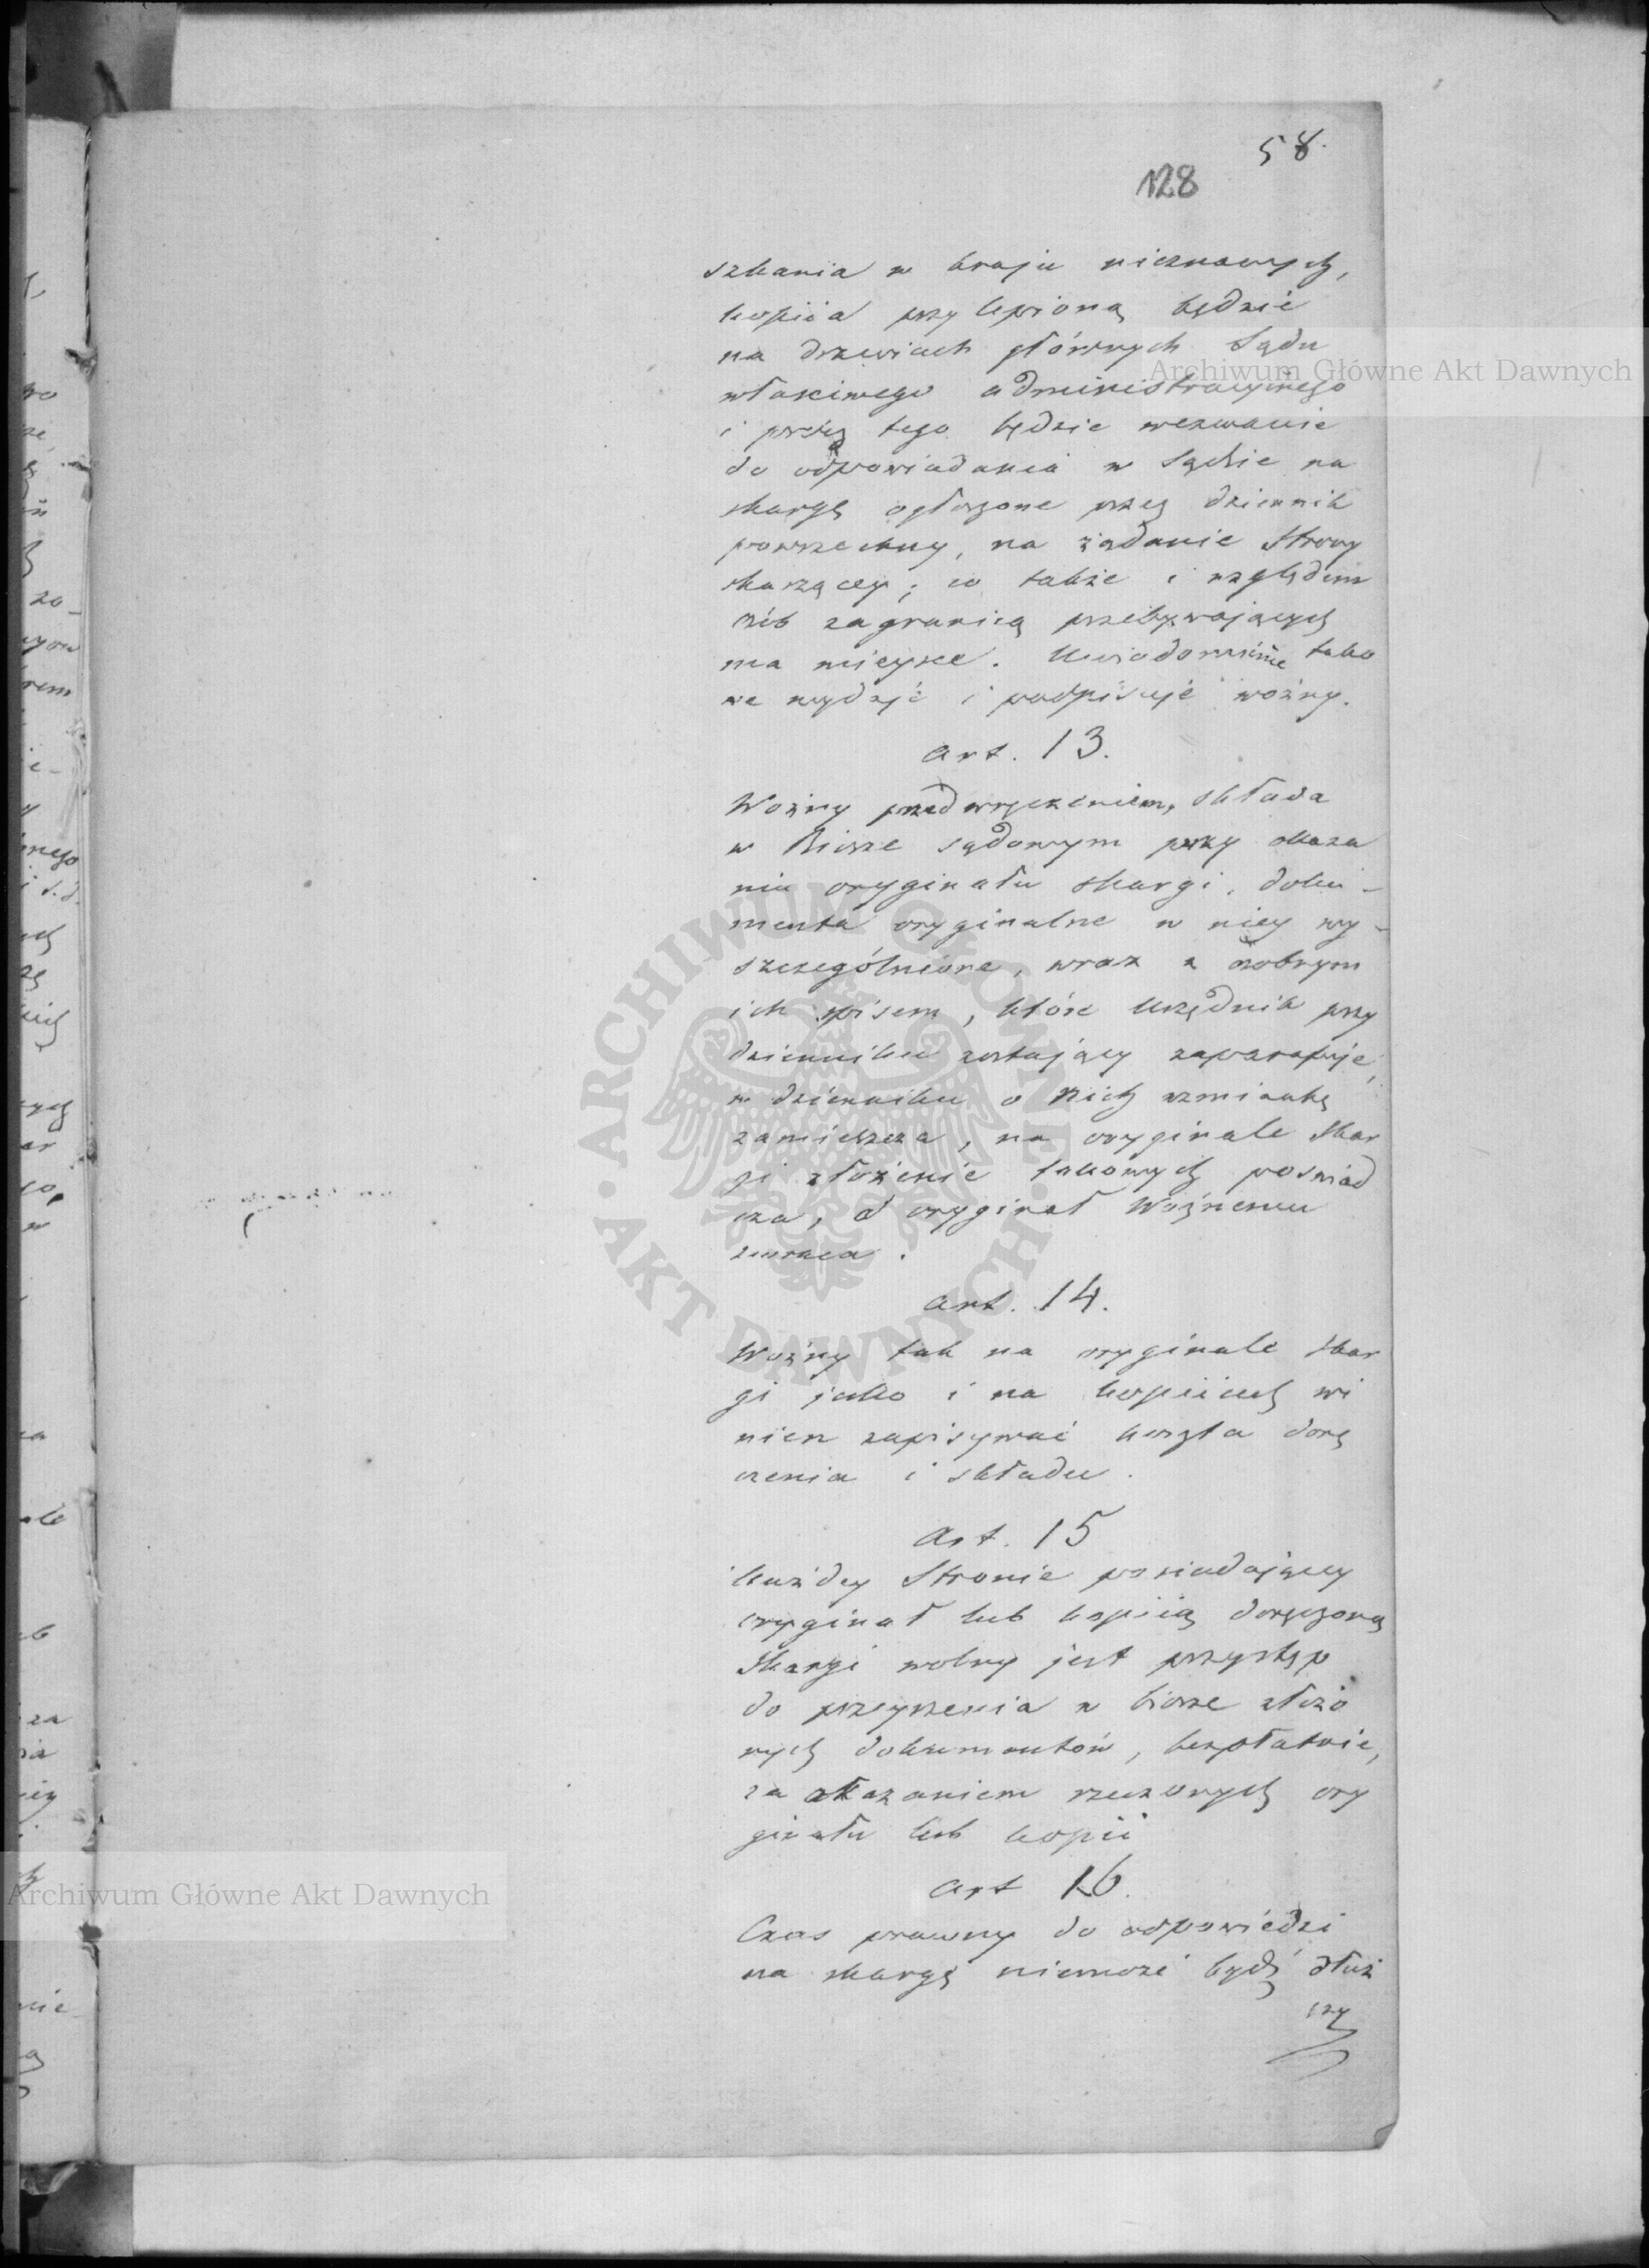 58.
128
szkania w kraju nieznanych,
kopiia przylepioną będzie
na drzwiach głównych Sądu
właściwego administracyinego
i prócz tego będzie wezwanie
do odpowiadania w Sądzie na
skargę ogłoszone przez dziennik
powszechny, na żądanie Strony
skarżącey; co także i względem
osób zagranicą przebywających
ma mieysce. Uwiadomienie tako
we wydaje i podpisuje woźny.
Art. 13.
Woźny przed wręczeniem, składa
w Biorze sądowym przy okaza
niu oryginału skargi, doku-
menta oryginalne w niey wy-
szczególnione, wraz z osobnym
ich spisem, które Urzędnik przy
dzienniku zostający zaparafuje,
w dzienniku o nich wzmiankę
zamieszcza, na oryginale skar
gi złożenie takowych poświad
cza, a oryginał Woźnemu
zwraca.
Art. 14.
Woźny tak na oryginale skar
gi jako i na kopiiach wi
nien zapisywać koszta dorę
czenia i składu.
Art. 15
Każdey Stronie posiadającey
oryginał lub kopiią doręczoną
Skargi wolny jest przystęp
do przeyrzenia w biorze złożo
nych dokumentów, bezpłatnie,
za okazaniem rzeczonych ory
ginału lub kopii
Art 16.
Czas prawny do odpowiedzi
na skargę niemoże bydź dłuż
szy
Archiwum Główne Akt Dawnych
Archiwum Główne Akt Dawnych
ARCHIWUM GŁÓWNE AKT DAWNYCH